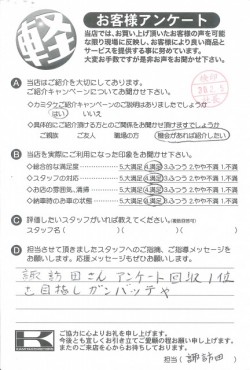 軽
お客様アンケート
当店では、お買い上げ頂いたお客様の声を可能
な限り現場に反映し、お客様により良い商品と
サービスを提供する事に努めています。
大変お手数ですが是非お声をお聞かせ下さい。
A 当店はご紹介を大切にしております。
ご紹介キャンペーンについてお聞かせ下さい。
◇カミタケご紹介キャンペーンのご説明はありましたでしょうか
はい いいえ
◇具体的にご紹介頂ける方とのご関係をお聞かせ頂けますでしょうか
ご親族 ご友人 職場の方 機会があれば紹介したい
B 当店を実際にご利用になった印象をお聞かせ下さい。
◇総合的な満足度 5.大満足 4.満足 3.ふつう 2.やや不満 1.不満
◇スタッフの対応 5.大満足 4.満足 3.ふつう 2.やや不満 1.不満
◇お店の雰囲気、清掃 5.大満足 4.満足 3.ふつう 2.やや不満 1.不満
◇納車時のお車の状態 5.大満足 4.満足 3.ふつう 2.やや不満 1.不満
C 評価したいスタッフがいれば教えてください。
スタッフ名( )( )
D 担当させて頂きましたスタッフへのご指摘、ご指導メッセージを
お願いします。応援メッセージもぜひお願いします。
諏訪田さんアンケート回収1位
を目指しガンバッテヤ
K
ご協力に心よりお礼を申し上げます。
今後とも宜しくお引き立てご愛顧の程お願い申し上げます。
またのご来店を心からお待ちしております。
担当( 諏訪田 )